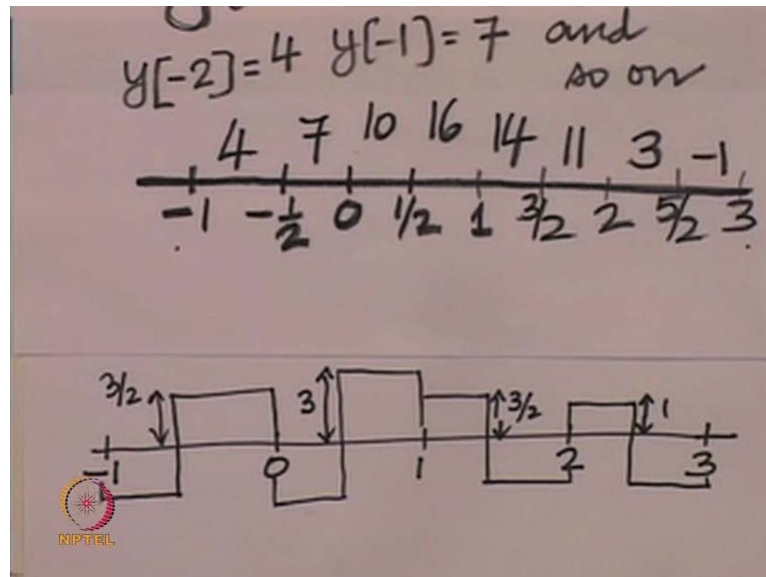 y[-2]=4 y[-1]=7 and
so on
4 7 10 16 14 11 3 -1
-1 -1/2 0 1/2 1 3/2 2 5/2 3
3/2 3 3/2 1
-1 0 1 2 3
NPTEL